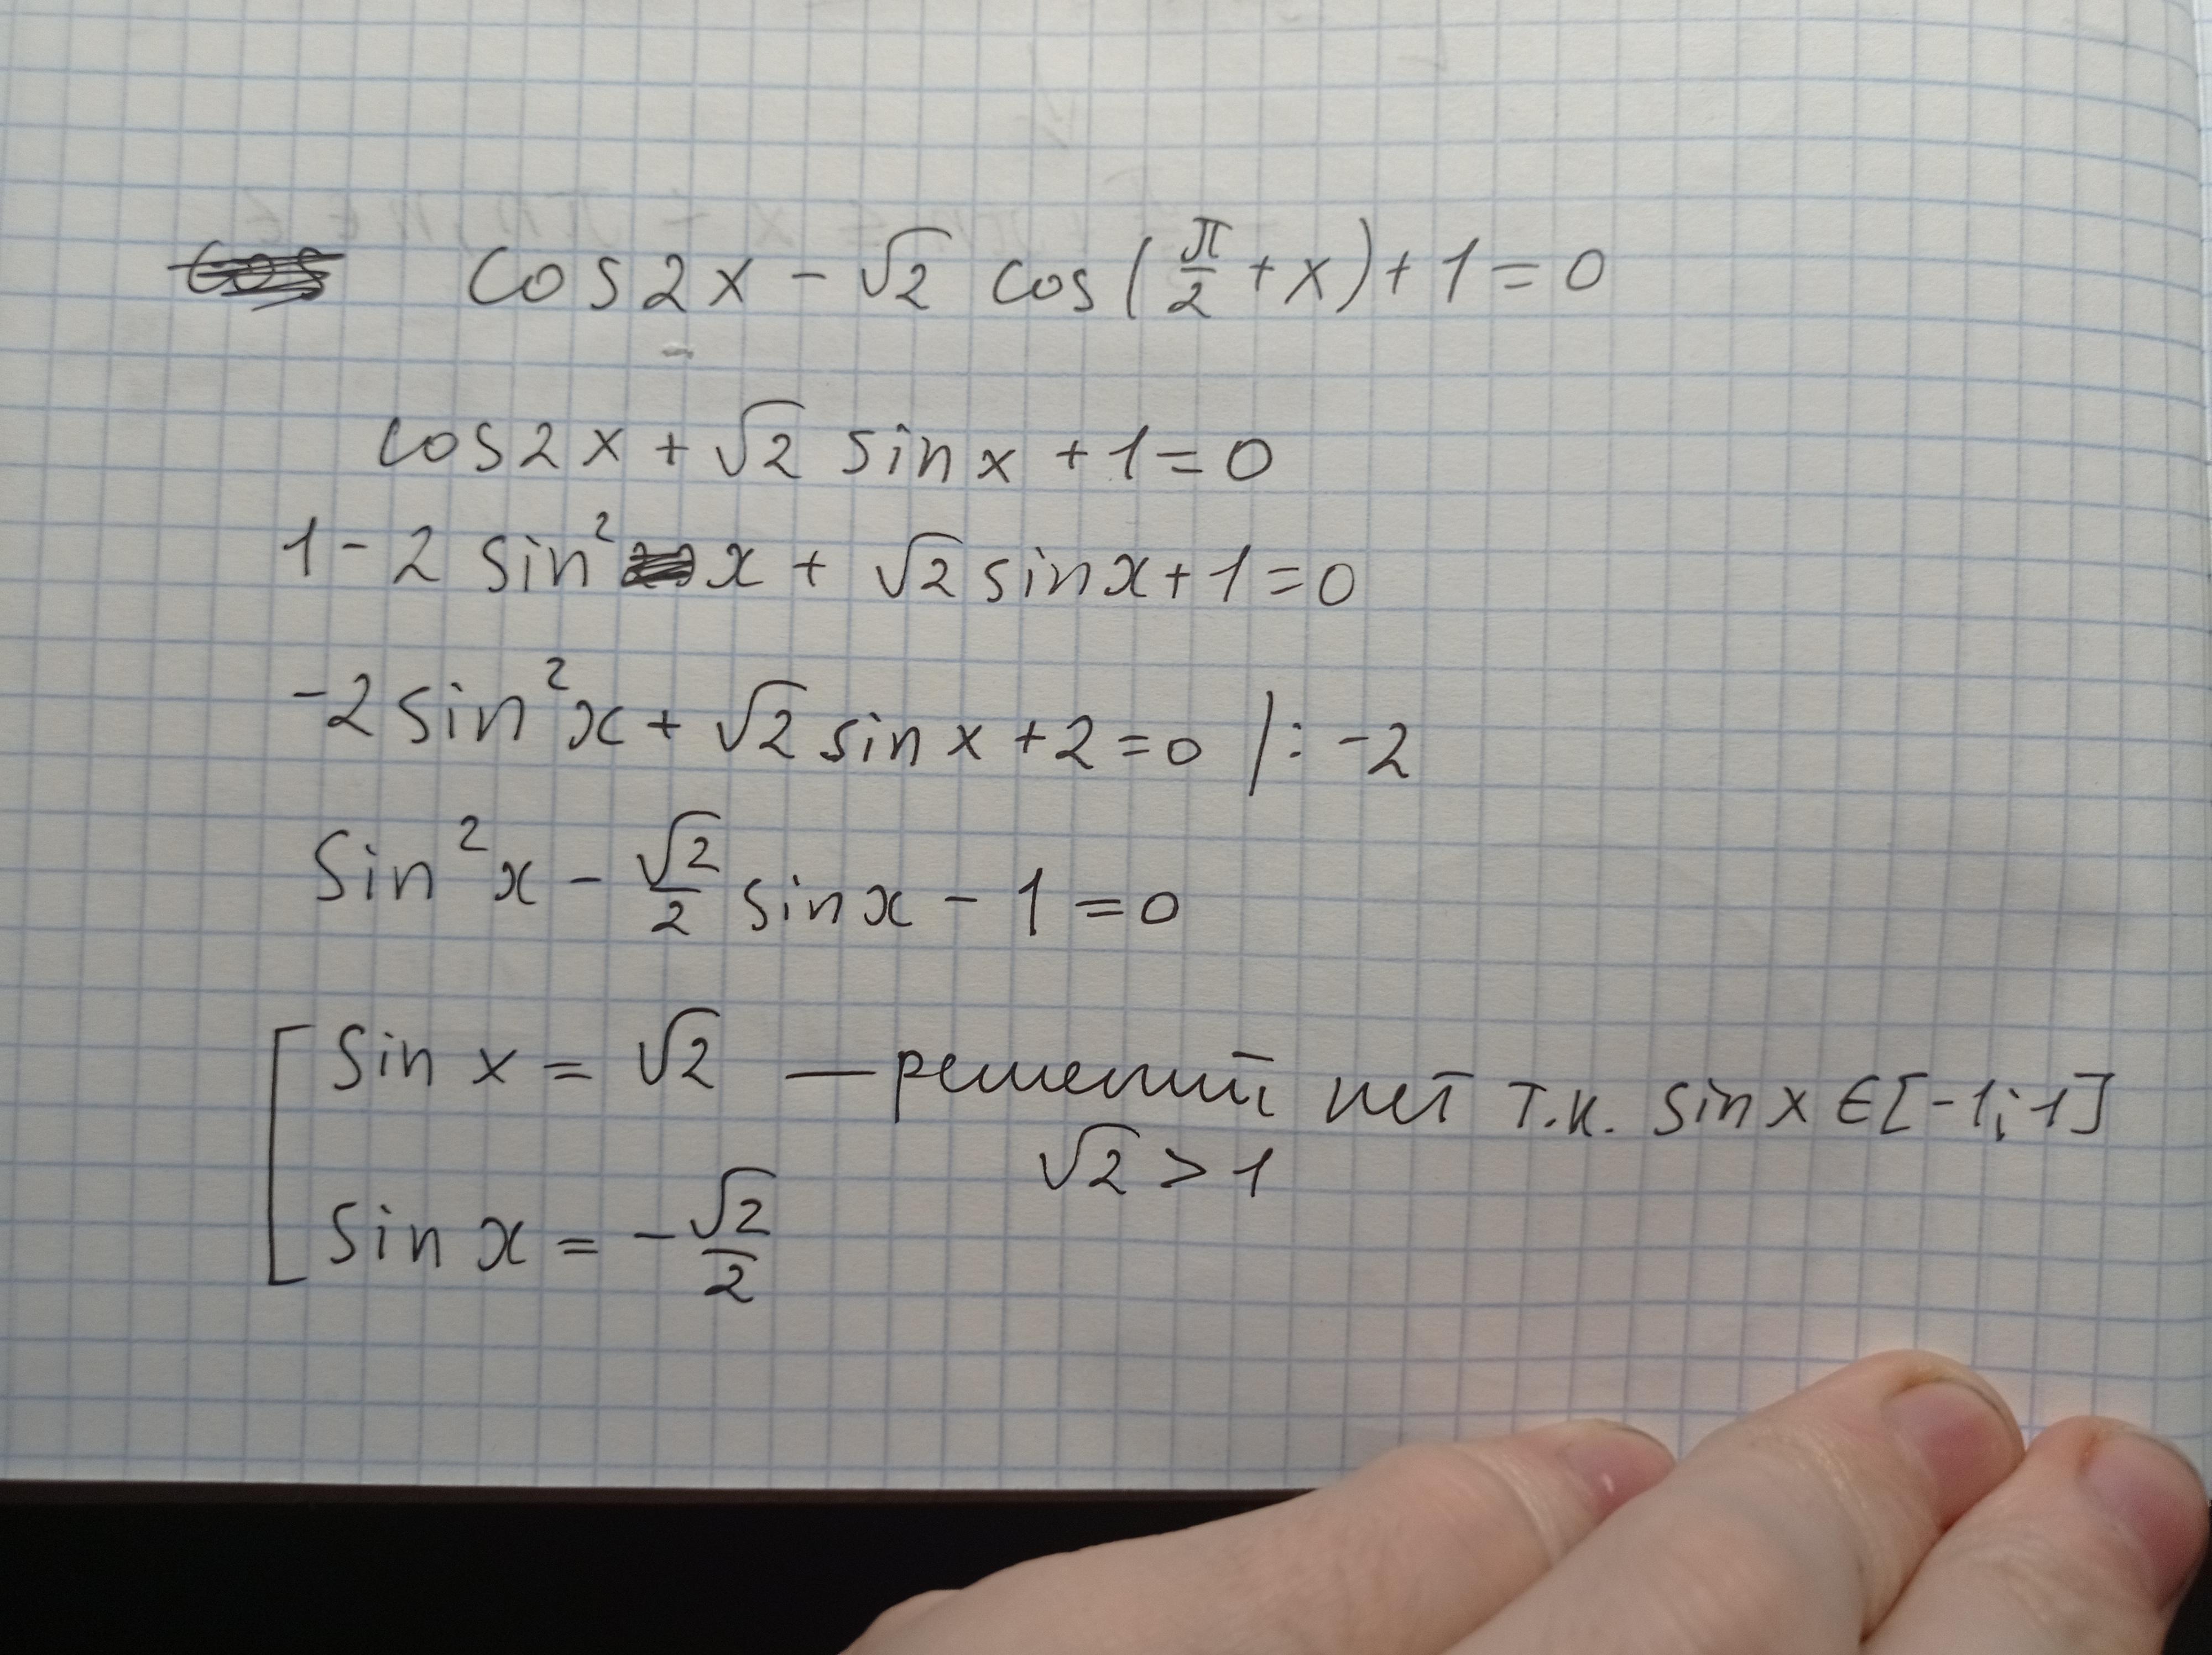 cos 2x - √2 cos(π/2 + x) + 1 = 0
cos 2x + √2 sin x + 1 = 0
1 - 2 sin² x + √2 sin x + 1 = 0
-2 sin² x + √2 sin x + 2 = 0 | : -2
sin² x - √2/2 sin x - 1 = 0
[ sin x = √2 — решений нет т.к. sin x ∈ [-1; 1]
√2 > 1
sin x = -√2/2